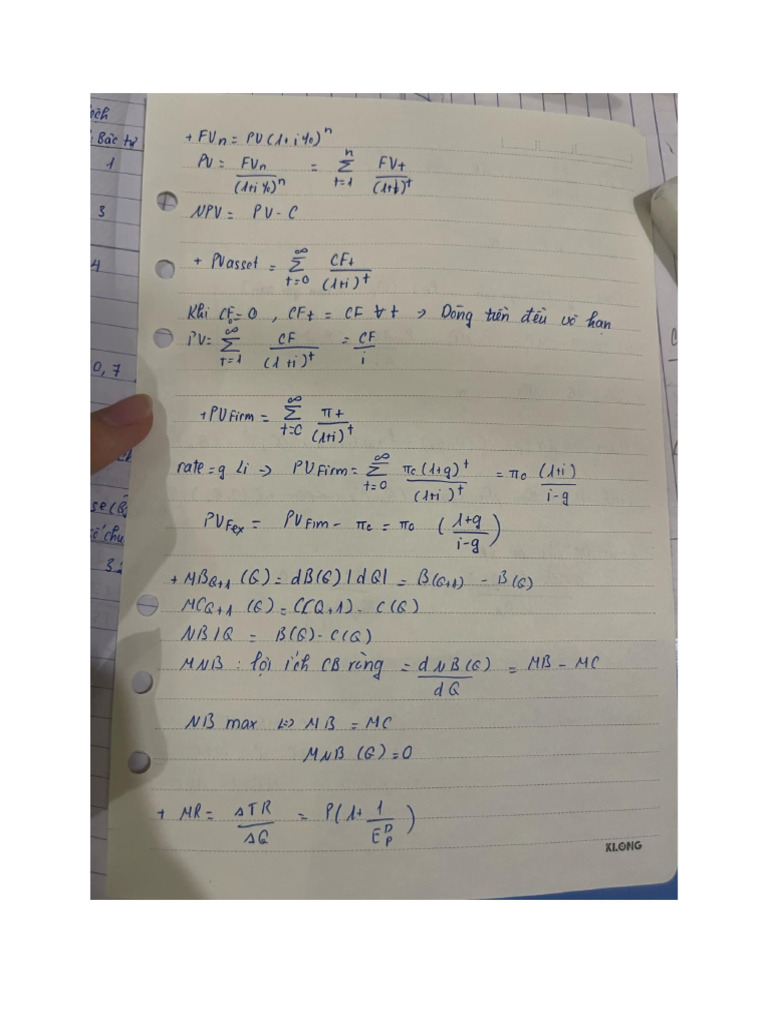 ích
Bác tư
1
3
4
0,7
3
+ FVn = PV(1+i%)^n
PV = FVn/(1+i%)^n = Σ(t=1→n) FVt/(1+i)^t
NPV = PV - C
+ PVasset = Σ(t=0→∞) CFt/(1+i)^t
Khi CF₀=0, CFt = CF ∀t → Dòng tiền đều vô hạn
PV = Σ(t=1→∞) CF/(1+i)^t = CF/i
+ PVFirm = Σ(t=0→∞) πt/(1+i)^t
rate = g < i → PVFirm = Σ(t=0→∞) π₀(1+g)^t/(1+i)^t = π₀ (1+i)/(i-g)
PVFex = PVFim - π₀ = π₀ (1+g/i-g)
+ MBQ+1 (Q) = dB(Q)|dQ| = B(Q+1) - B(Q)
MCQ+1 (Q) = C(Q+1) - C(Q)
NB|Q = B(Q) - C(Q)
MNB : lợi ích CB ròng = dNB(Q)/dQ = MB - MC
NB max ⇔ MB = MC
MNB (Q) = 0
+ MR = ΔTR/ΔQ = P(1+ 1/E^D_P)
KLONG